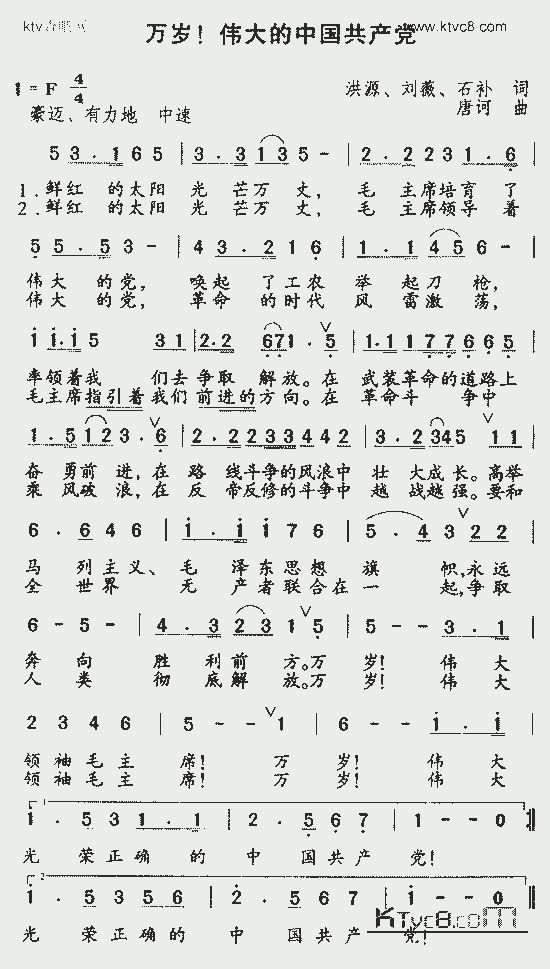 ktv合唱网
www.ktvc8.com
万岁！伟大的中国共产党
1 = F 4/4
洪源、刘薇、石补 词
豪迈、有力地 中速
唐诃 曲
5 3 . 1 6 5 | 3 . 3 1 3 5 - | 2 . 2 2 3 1 . 6 |
1. 鲜红 的太阳 光 芒万 丈， 毛 主席培育 了
2. 鲜红 的太阳 光 芒万 丈， 毛 主席领导 着
5 5 . 5 3 - | 4 3 . 2 1 6 | 1 . 1 4 5 6 - |
伟大 的党， 唤起 了工农 举 起刀 枪，
伟大 的党， 革命 的时代 风 雷激 荡，
1 1.1 5 3 1 | 2.2 6 7 1 . 5 | 1.1 1 7 7 6 6 6 5 |
率领着我 们去争取 解放。在 武装革命的道路上
毛主席指引着我们前进的方向。在 革命斗 争中
1 . 5 1 2 3 . 6 | 2 . 2 2 2 3 3 4 4 2 | 3 . 2 3 4 5 1 1 |
奋 勇前 进，在 路 线斗争的风浪中 壮 大成长。高举
乘 风破 浪，在 反 帝反修的斗争中 越 战越强。要和
6 . 6 4 6 | 1 . 1 1 7 6 | 5 . 4 3 2 2 |
马 列主义、毛 泽东思想 旗 帜，永远
全 世界 无 产者联合在一 起，争取
6 - 5 - | 4 . 3 2 3 1 5 | 5 - - 3 . 1 |
奔 向 胜 利前 方。万 岁！ 伟 大
人 类 彻 底解 放。万 岁！ 伟 大
2 3 4 6 | 5 - - 1 | 6 - - 1 . 1 |
领袖毛主 席！ 万 岁！ 伟 大
领袖毛主 席！ 万 岁！ 伟 大
1
1 . 5 3 1 . 1 | 2 . 5 6 7 | 1 - - 0 :||
光 荣正确 的 中 国共产 党！
2
1 . 5 3 5 6 | 2 . 5 6 7 | 1 - - 0
光 荣正确的 中 国共产 党！
KTvc8.com